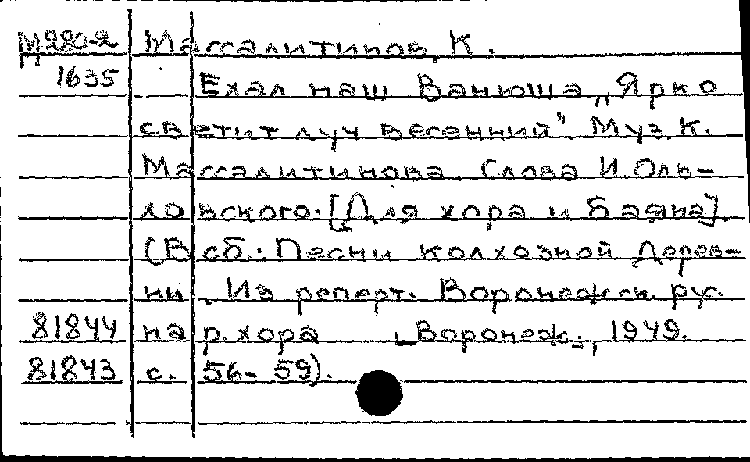 М280-2 Массалитинов, К.
1635 Ехал наш Ванюша „Ярко
светит луч весенний". Муз. К.
Массалитинова. Слова И. Оль-
ховского. [Для хора и баяна].
(В сб.: Песни колхозной дерев-
ни. Из реперт. Воронежск. рус.
81844 нар. хора Воронеж., 1949.
81843 с. 56-59).